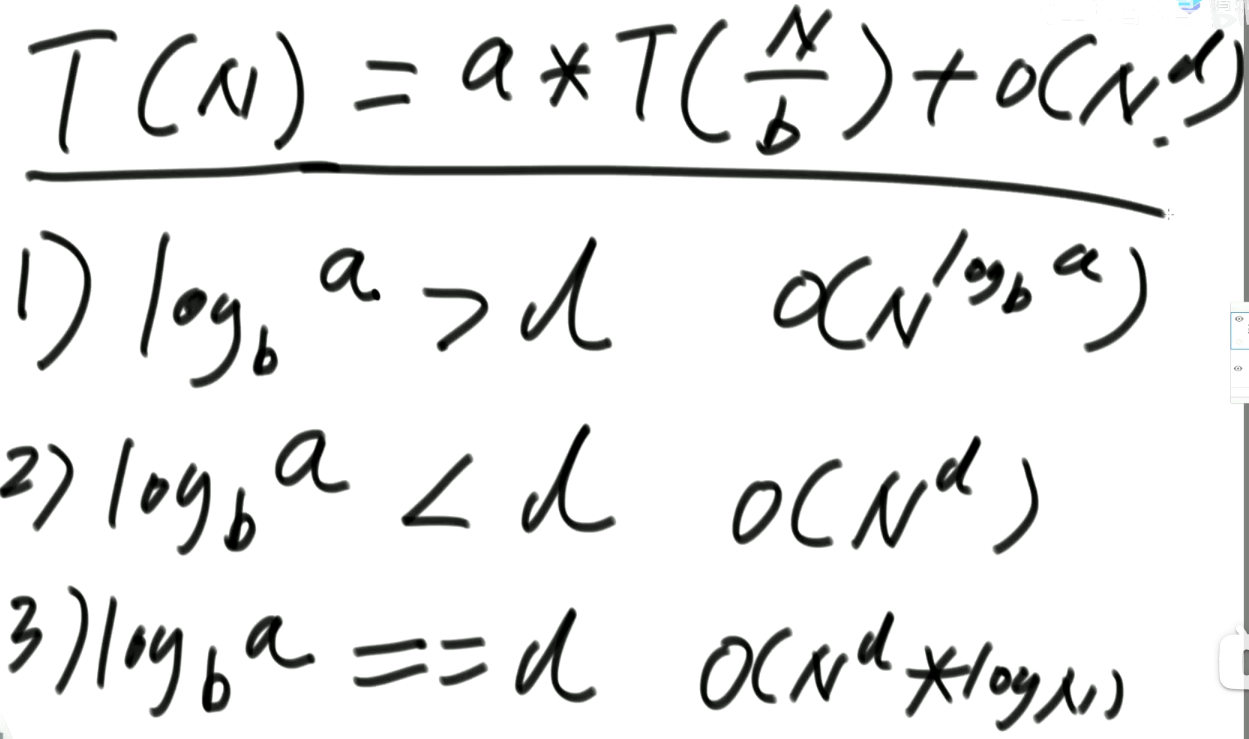 T(N) = a * T(N/b) + O(N^d)
1) log_b a > d O(N^log_b a)
2) log_b a < d O(N^d)
3) log_b a == d O(N^d * logN)